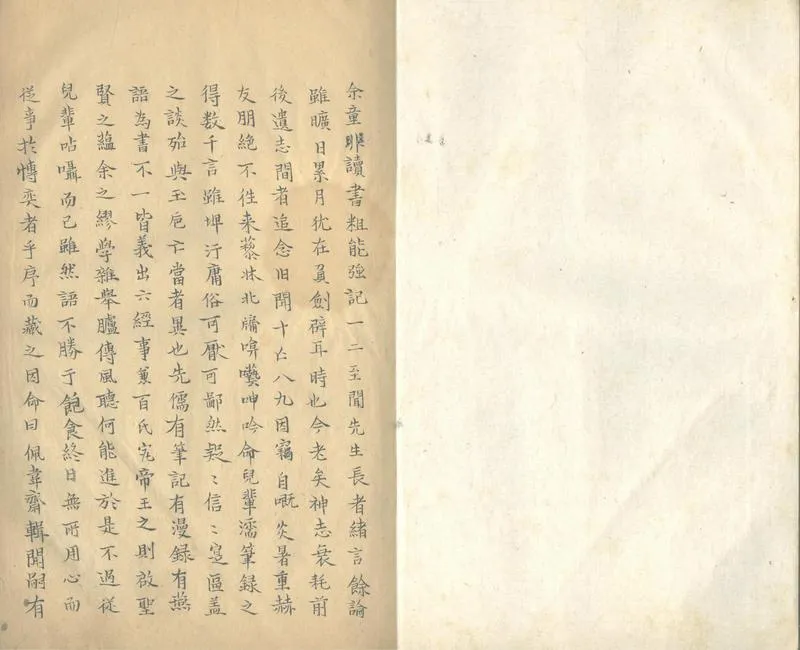 余童丱讀書粗能強記一二至聞先生長者緒言餘論
雖曠日累月犹在負劍辟耳時也今老矣神志衰耗前
後遺志間者追念旧聞十亡八九因竊自嘅炎暑重赫
友朋絶不徃来藜牀北牗嚊囈呻吟命兒輩濡筆録之
得数千言雖埤汙庸俗可厭可鄙然疑〻信〻寔區蓋
之談殆與玉卮亡當者異也先儒有筆記有漫録有燕
語為書不一皆義出六經事兼百氏究帝王之則啟聖
賢之蘊余之繆學雜舉臚傳風聽何能進於是不過従
兒輩呫囁而已雖然語不勝于飽食終日無所用心而
従事扵愽奕者乎序而藏之因命曰佩韋齋輯聞嗣有